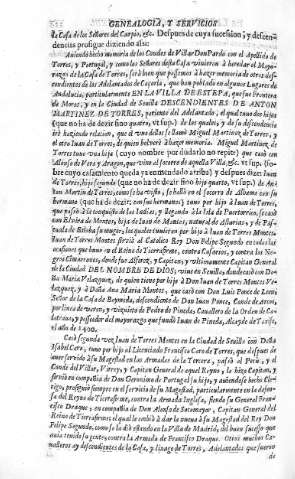 GENEALOGIA, Y SERVICIOS
la Casa de los Señores del Carpio, &c. Despues de cuya sucession, y descen-
dencias prosigue diziendo assi:
Aviendo hecho memoria de los Condes de Villar Don Pardo con el Apellido de
Torres, y Portugal, y como los Señores desta Casa vinieron à heredar el Mayo-
razgo de la Casa de Torres, serà bien que passemos à hazer memoria de otros des-
cendientes de los Adelantados de Caçorla, que han poblado en algunos Lugares de
Andaluzia, particularmente EN LA VILLA DE ESTEPA, que fue frontera
de Moros, y en la Ciudad de Sevilla DESCENDIENTES DE ANTON
MARTINEZ DE TORRES, pariente del Adelantado, el qual tuvo dos hijos
(que no ha de dezir sino quatro, vt sup.) de los quales, y de su descendencia
irè haziendo relacion, que al vno dellos se llamò Miguel Martinez de Torres, y
el otro Juan de Torres, de quien bolverè à hazer memoria. Miguel Martinez, de
Torres tuvo vna hija (cuyo nombre por dudarlo no repito) que casò con
Alonso de Vera y Aragon, que vino al socorro de aquella Villa, &c. vt sup. (so-
bre cuyo casamiento queda yà comendado arriba) y despues dize: Juan
de Torres, hijo segundo (que no ha de dezir sino hijo quarto, vt sup.) de An-
ton Martin de Torres, como se ha visto, se hallò en el socorro de Alhama con su
hermano (que ha de dezir con sus hermanos) tuvo por hijo à Juan de Torres,
que passò à la conquista de las Indias, y llegando à la Isla de Puertorico, casò
con Elvira de Montes, hija de Luis de Montes, natural de Asturias, y de Pas-
cuala de Brieba su muger, los quales tuvieron por hijo à Juan de Torres Montes.
Juan de Torres Montes sirviò al Catolico Rey Don Felipe Segundo en todas las
ocasiones que huvo en el Reyno de Tierrafirme, contra Cosarios, y contra los Ne-
gros Cimarrones, donde fue Alferez, y Capitan, y vltimamente Capitan General
de la Ciudad DEL NOMBRE DE DIOS; vino à Sevilla, donde casò con Do-
ña Maria Velazquez, de quien tiene por hijo à Don Juan de Torres Montes Ve-
lazquez, y à Doña Ana Maria Montes, que casò con Don Luis Ponce de Leon
Señor de la Casa de Bezmeda, descendiente de Don Juan Ponce, Conde de Arcos,
por linea de varon, y viznieto de Pedro de Pineda, Cavallero de la Orden de Ca-
latrava, y possedor del mayorazgo que fundò Juan de Pineda, Alcayde de Tarifa,
el año de 1400.
Casò segunda vez Juan de Torres Montes en la Ciudad de Sevilla con Doña
Isabel Cero, tuvo por hijo al Licenciado Francisco Caro de Torres, que despues de
aver servido à su Magestad en las Armadas de la Tercera, passò al Perù, y el
Conde del Villar, Virrey, y Capitan General de aquel Reyno, le hizo Capitan, y
sirviò en compañia de Don Geronimo de Portugal su hijo, y aviendose buelto Cle-
rigo, prosiguiò siempre en el servicio de su Magestad, particularmente en la defen-
sa del Reyno de Tierrafirme, contra la Armada Inglesa, siendo su General Fran-
cisco Draque, en compañia de Don Alonso de Sotomayor, Capitan General del
Reyno de Tierrafirme, el qual le embiò à dar la nueva à su Magestad del Rey Don
Felipe Segundo, como se la diò estando en la Villa de Madrid, del buen sucesso que
avia tenido su gente, contra la Armada de Francisco Draque. Otros muchos Ca-
valleros ay descendientes de la Casa, y linage de Torres, Adelantados que fueron
de